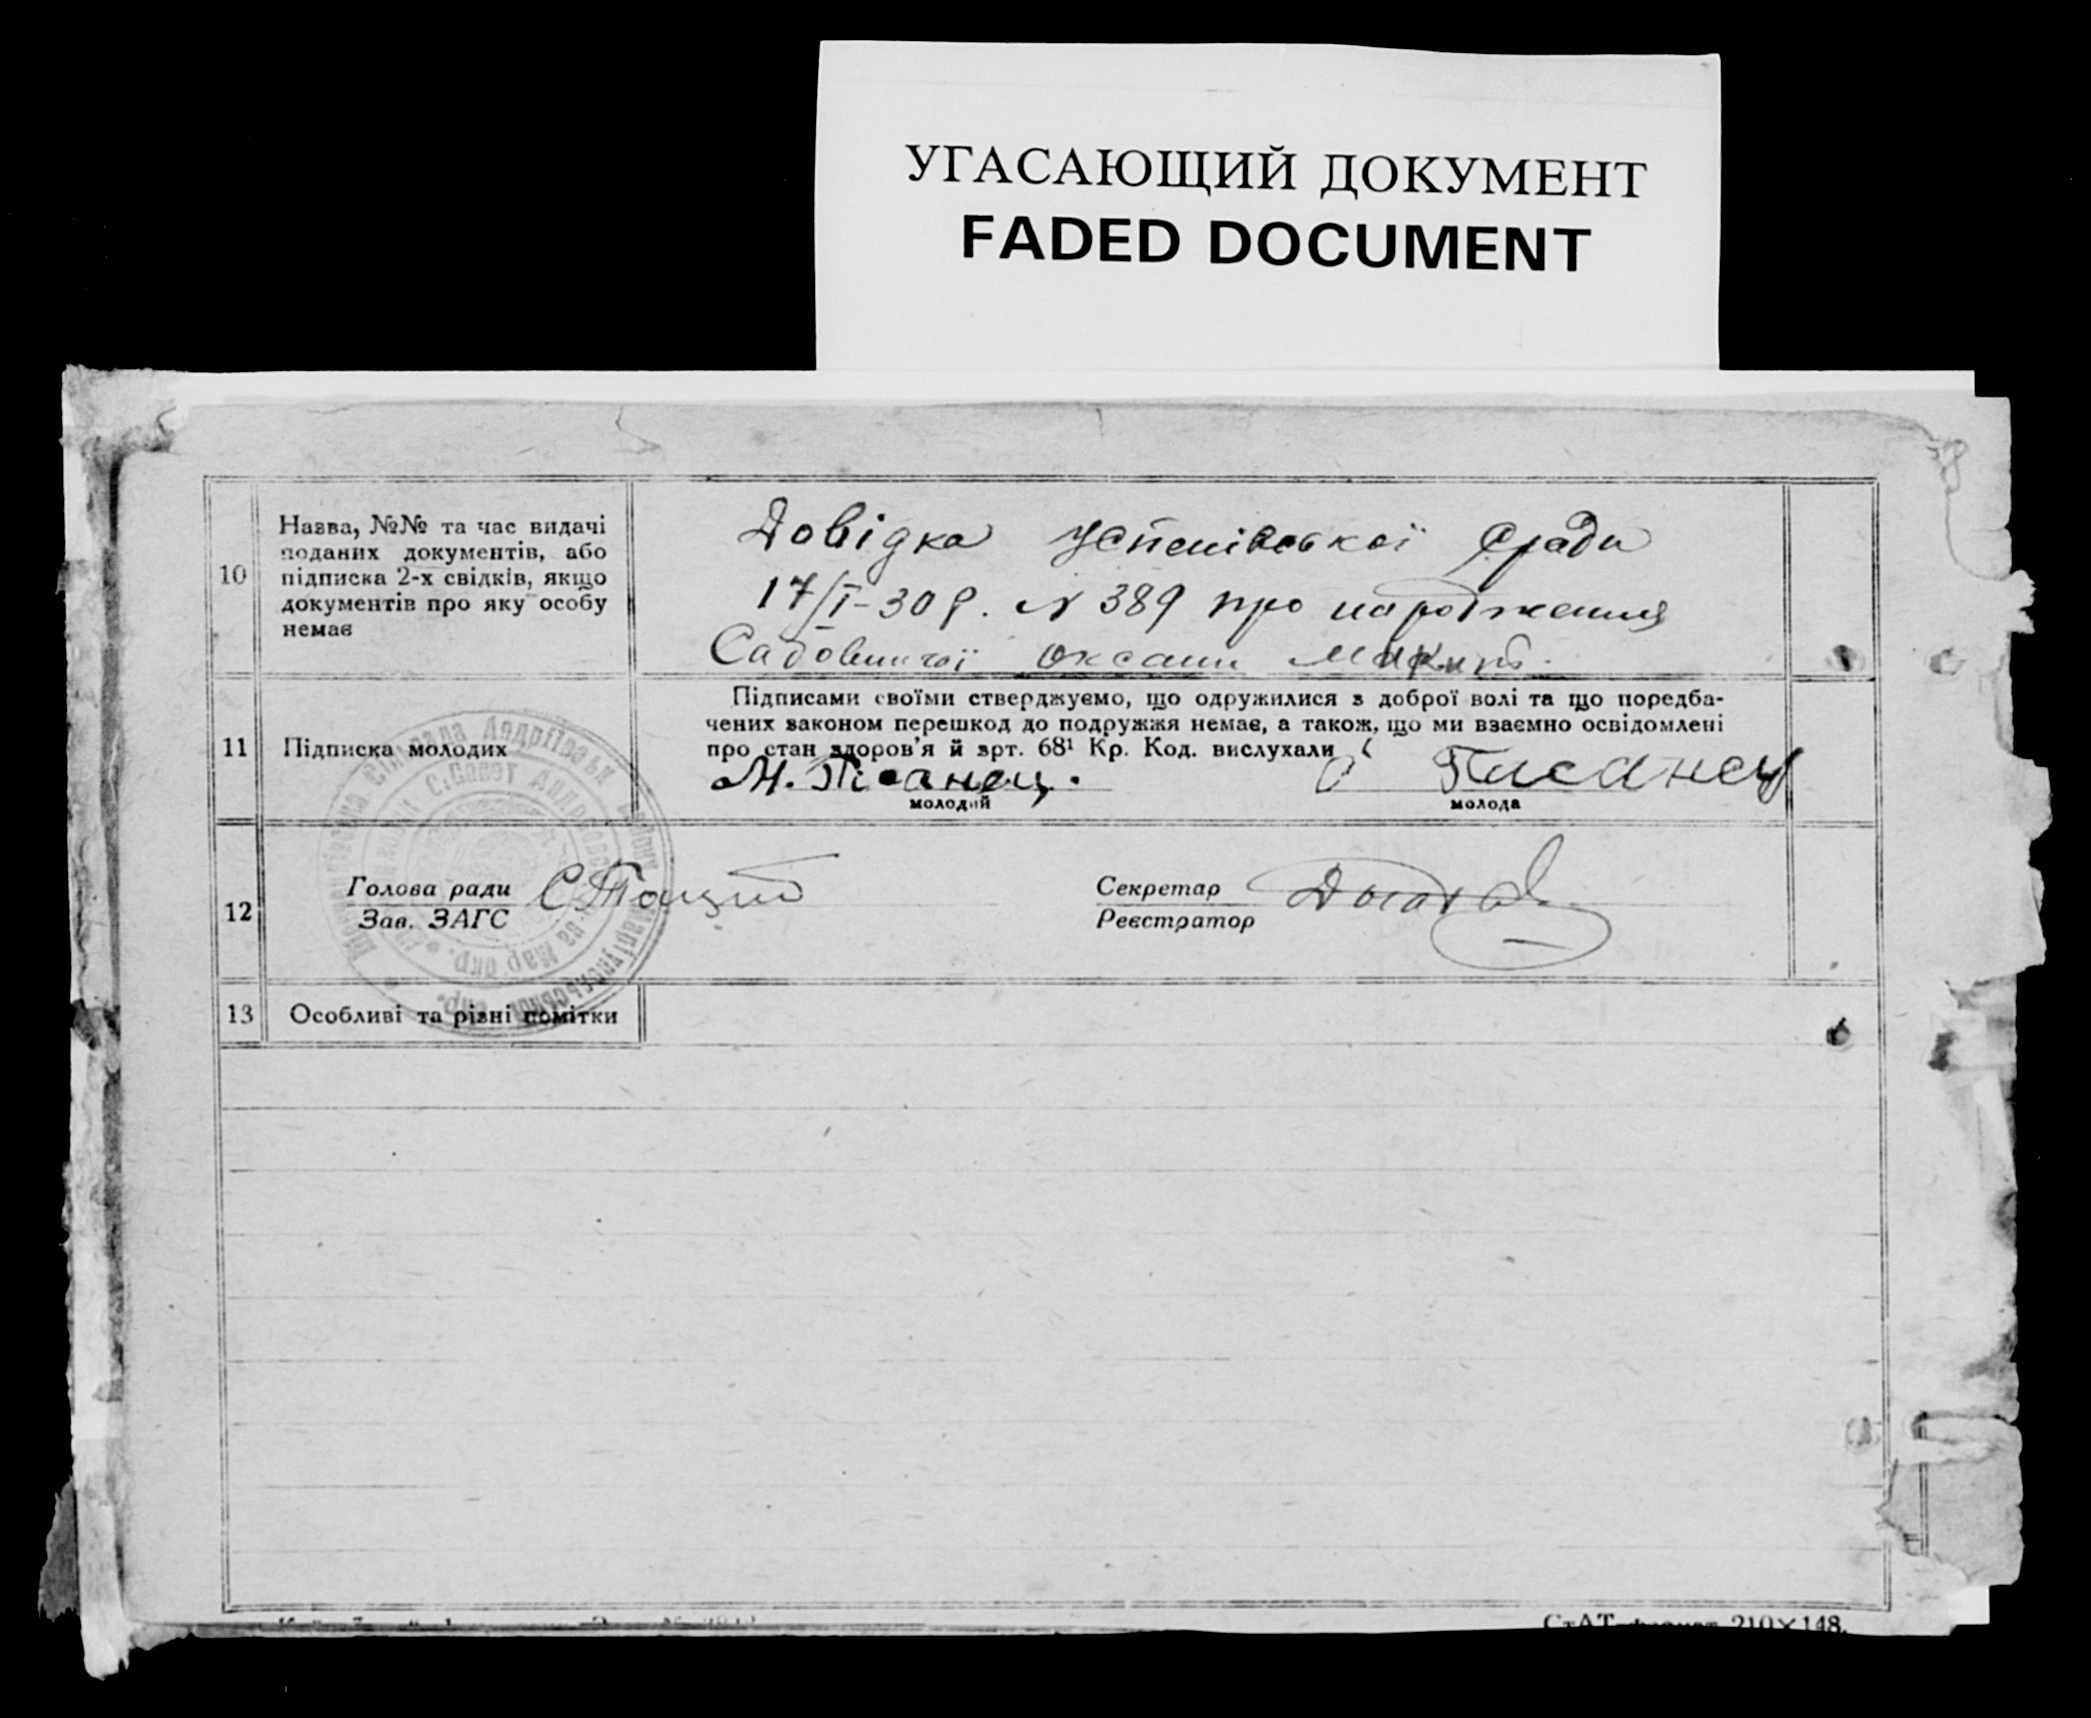 УГАСАЮЩИЙ ДОКУМЕНТ
FADED DOCUMENT
10
Назва, №№ та час видачі
поданих документів, або
підписка 2-х свідків, якщо
документів про яку особу
немає
Довідка Успенівської с/ради
17/I-30 р. N 389 про народження
Садовничої Оксани
11
Підписка молодих
Підписами своїми стверджуємо, що одружилися з доброї волі та що поредба-
чених законом перешкод до подружжя немає, а також, що ми взаємно освідомлені
про стан здоров'я й арт. 68¹ Кр. Код. вислухали
М. Пісанец.
О Писанец
молодий
молода
12
Голова ради
Зав. ЗАГС
Секретар
Реєстратор
13
Особливі та різні помітки
210×148.